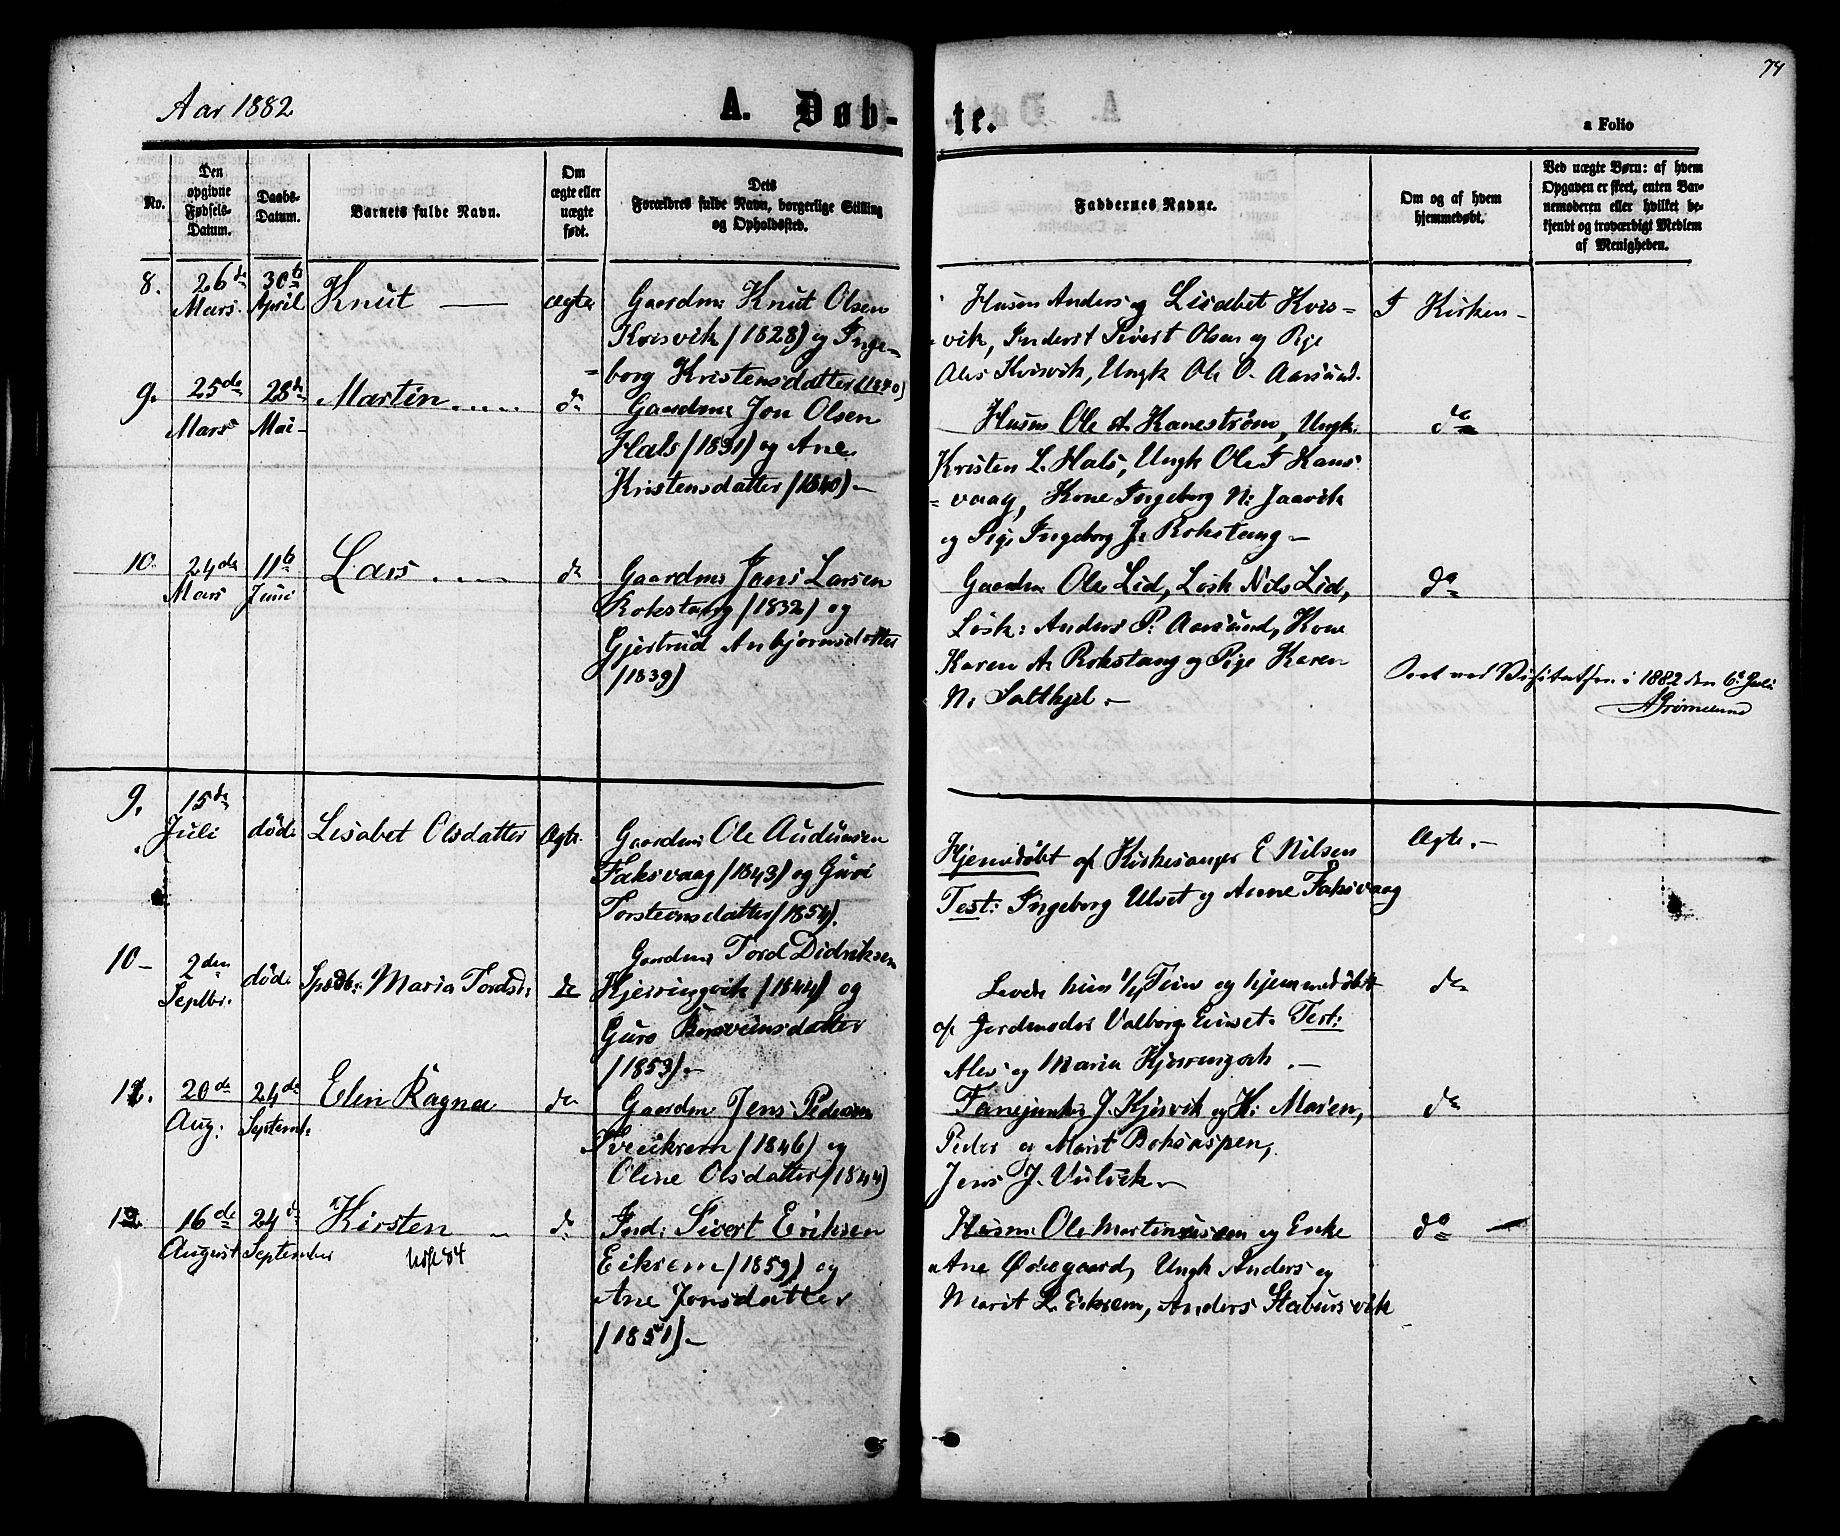 74
Aar 1882
A. Døb-
te.
a Folio
No.
Den opgivne Fødsels-Datum.
Daabs-Datum.
Barnets fulde Navn.
Om ægte eller uægte født.
Dets Forældres fulde Navn, borgerlige Stilling og Opholdssted.
Faddernes Navne.
Om og af hvem hjemmedøbt.
Ved uægte Børn: af hvem Opgaven er skeet, enten Barnemoderen eller hvilket bekjendt og troværdigt Medlem af Menigheden.
8. 26de Mars. 30te April Knut Ægte
Gaardm: Knut Olsen
Kvisvik (1828) og Inge=
=borg Kristensdatter (1840)
Husm Anders og Lisabet Kvis=
=vik, Inderst Sivert Olsen og Pige
Ales Kvisvik, Ungk Ole O. Aarsund.
I Kirken
9. 25de Mars 28de Mai Martin do
Gaardm: Jon Olsen
Hals (1831) og Ane
Kristensdatter (1840).
Husm Ole A. Kanestrøm, Ungk:
Kristen L. Hals, Ungk Ole I Hans
=vaag, Kone Ingeborg N: Jaavik
og Pige Ingeborg J: Rokstang.
do
10. 24de Mars 11te Juni Lars do
Gaardm Jens Larsen
Rokstang (1832) og
Gjertrud Anbjørnsdatter
(1839)
Gaardm Ole Lid, Losk Nils Lid,
Losk: Anders P: Aarsund, Kone
Karen A. Rokstang og Pige Karen
N: Saltkjel.
do
Seet ved Visitatsen i 1882 den 6te Juli
AGrømelund
9. 15de Juli død: Lisabet Olsdatter Ægte
Gaardm: Ole Audunsen
Faksvaag (1843) og Guri
Torsteinsdatter (1854).
Hjemdøbt af Kirkesanger E Nilsen
Test: Ingeborg Ulset og Anne Faksvaag
Ægte.
10 2den Septbr. død: Spædb: Maria Tordsd: do
Gaardm: Tord Didriksen
Hjerringvik (1844) og
Guro Bersveinsdatter
(1853).
Levede kun 1/4 Time og hjemmedøbt
af Jordmoder Valborg Einset. Test:
Ales og Maria Hjerringvik.
do
11. 20de Aug: 24de Septemb: Elen Ragna do
Gaardm Jens Pedersen
Sveeikrem (1846) og
Oline Olsdatter (1844)
Fanejunker J. Kjisvik og K: Maren,
Peder og Marit Bokesaspen,
Jens J. Vulvik.
do
12 16de August 24de September Kirsten do
Ind: Sivert Eriksen
Eikrem (1859) og
Ane Jonsdatter
(1851).
Husm: Ole Martinussen og Enke
Ane Ødegaard, Ungk Anders og
Marit L. Eikrem, Anders Stabursvik
do